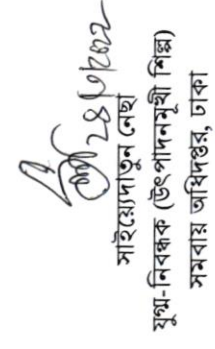 ২৪/৮/২০২২
সাইয়্যেদাতুন নেছা
যুগ্ম-নিবন্ধক (উৎপাদনমুখী শিল্প)
সমবায় অধিদপ্তর, ঢাকা